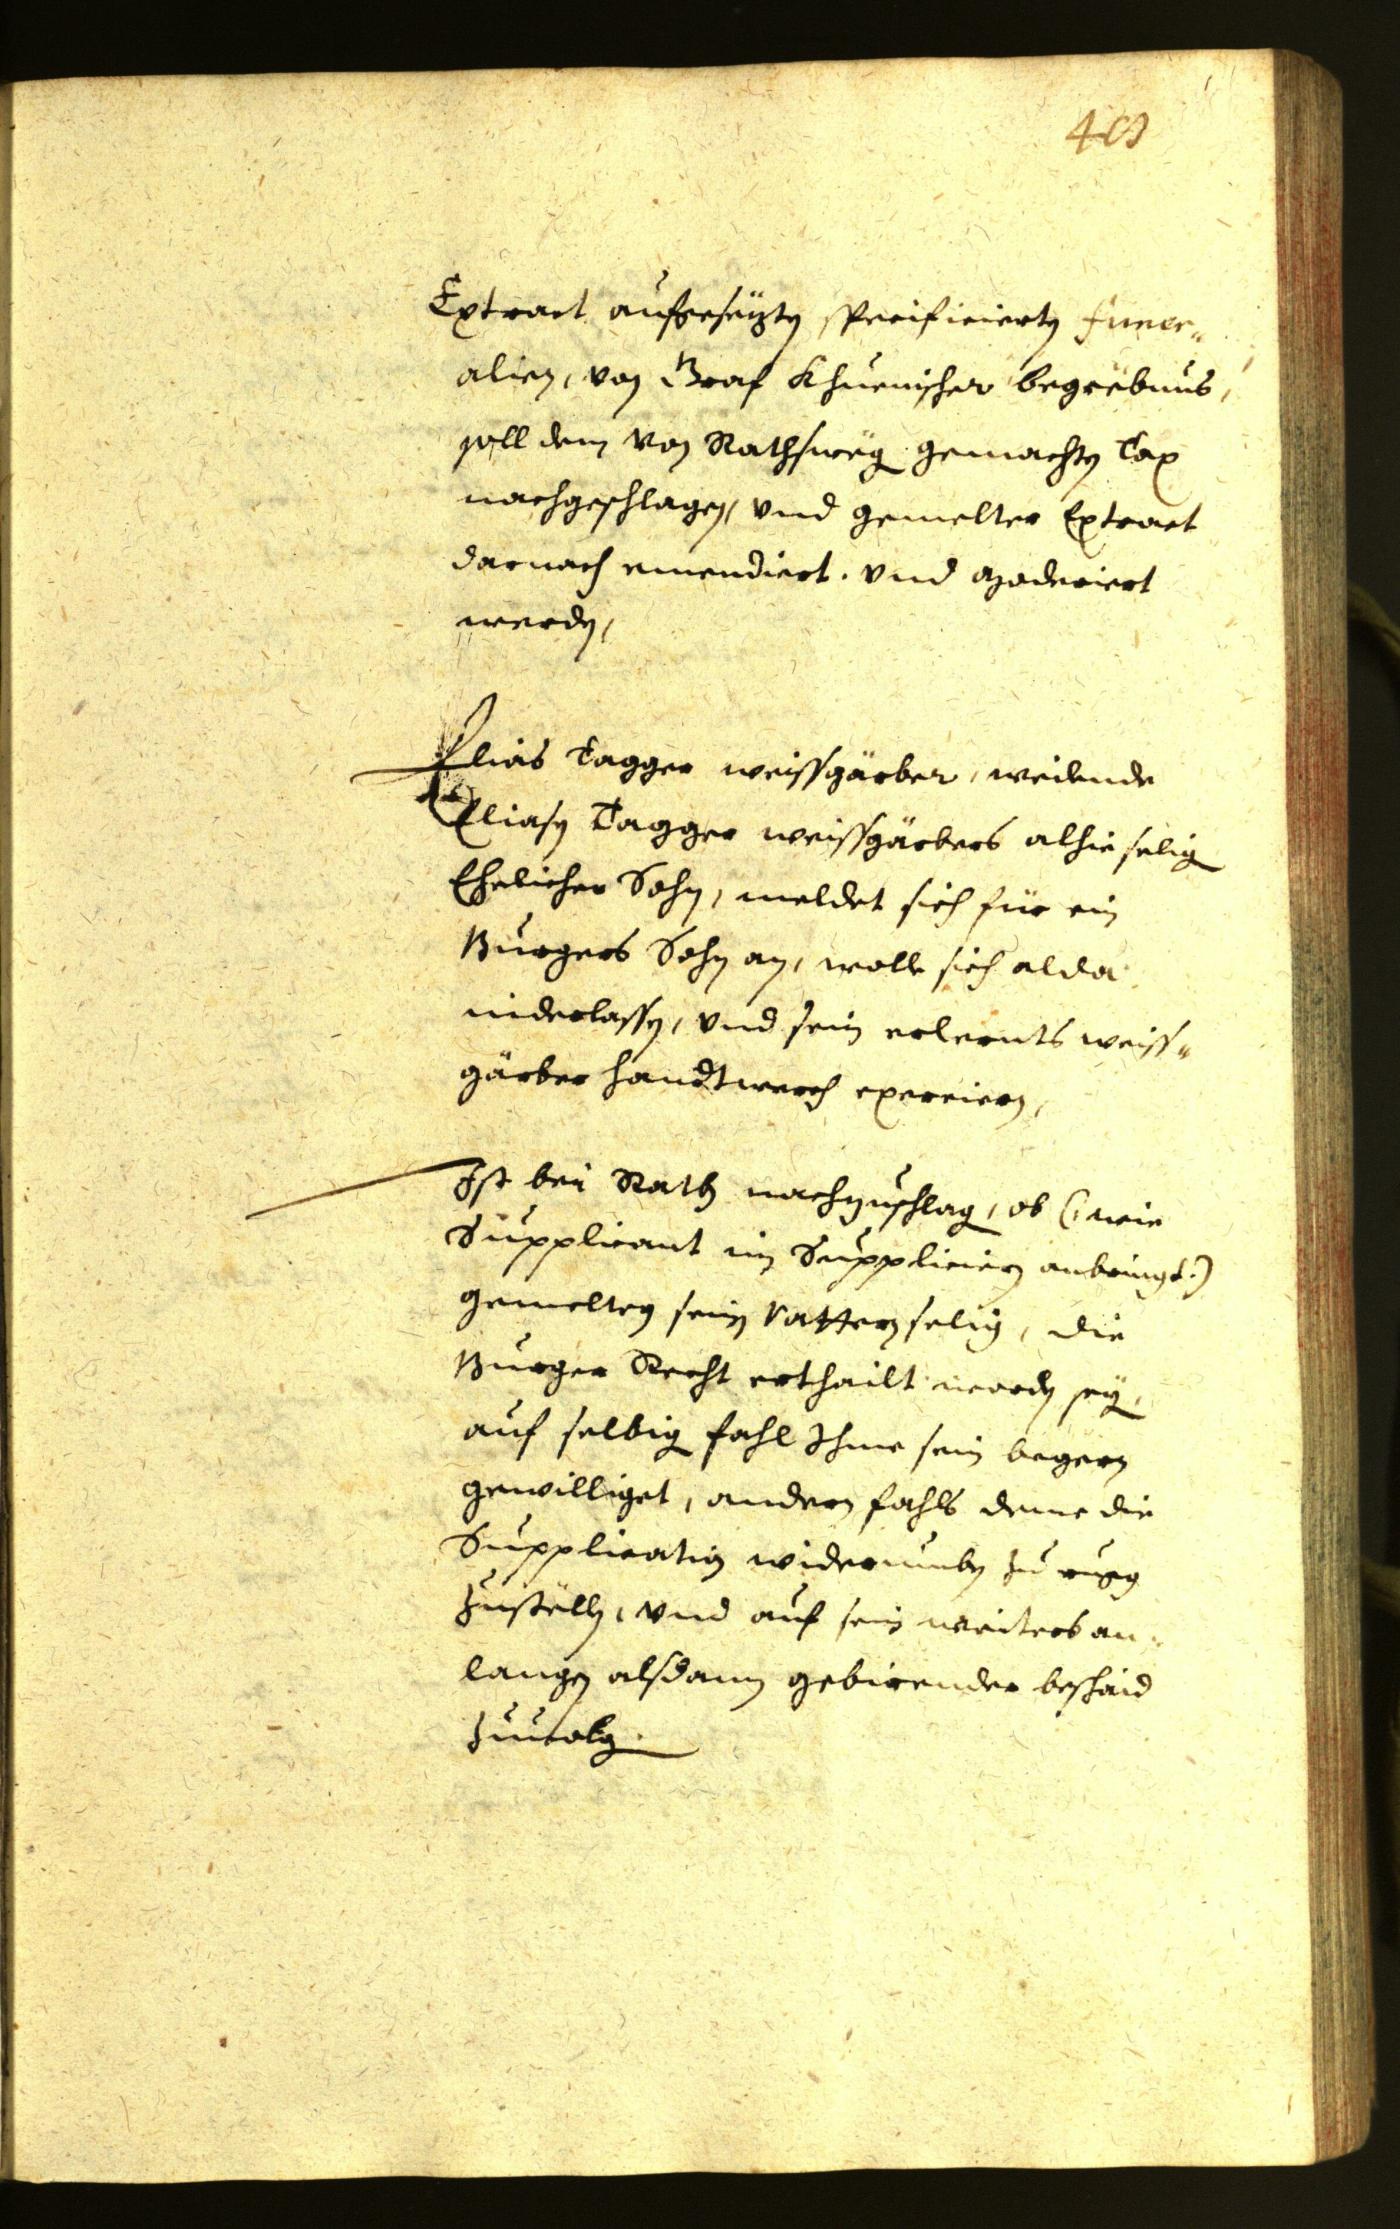 Extract aufgesezten specificierten funer-
alien, von Graf Khuenischer begrebnus,
soll dem von Rathswegen gemachten Tax
nachgeschlagen, vnd gemelter Extract
darnach emendiert. vnd moderiert
werden,
Elias Tagger weissgärber, weilende
Eliasen Tagger weissgärbers alhie selig
Ehelicher Sohn, meldet sich für ein
Burgers Sohn an, wolle sich alda
niderlassen, vnd sein erlernts weiss-
gärber handtwerch exercieren,
Ist bei Rath nachzuschlagen, ob (: wie
Supplicant im Supplicieren anbringt:)
gemelten sein Vattern selig, die
Burger Recht erthailt worden sey,
auf selbigen fahl Ihme sein begern
gewilliget, andern fahls deme die
Supplication widerumben zu rugg
zustellen, vnd auf sein weiters an-
langen alsdann gebirender beschaid